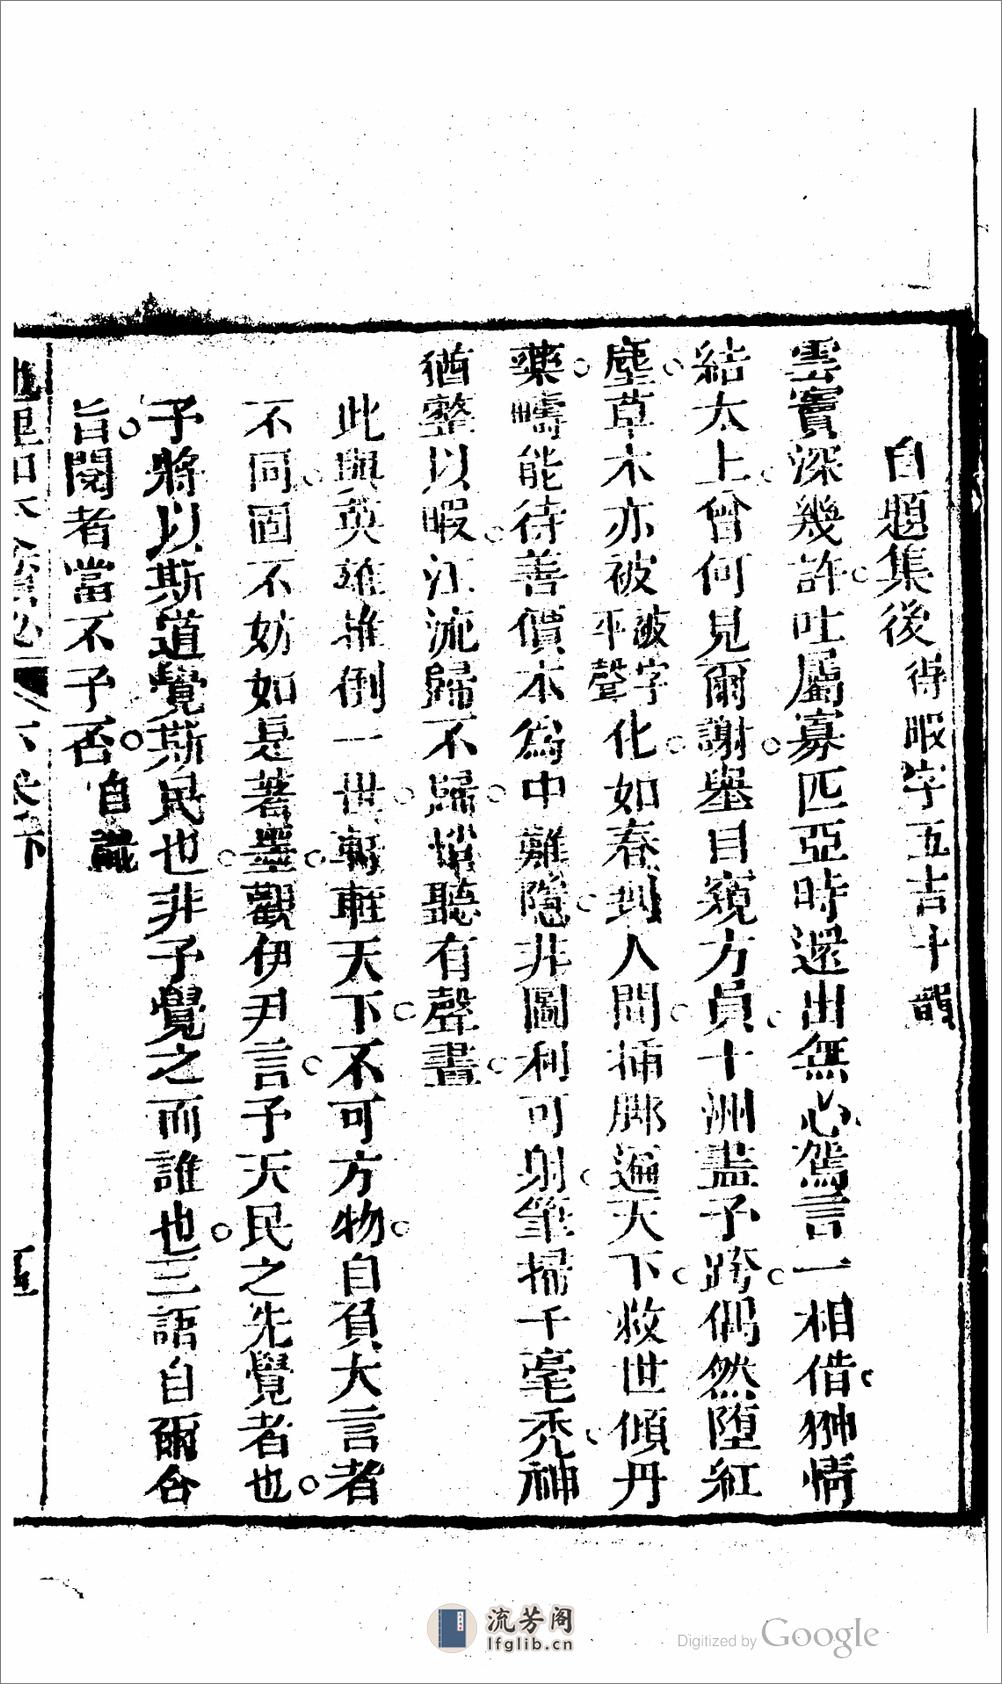 自題集後 得暇字五言十韻
雲竇深幾許吐屬寡匹亞時還出無心駕言一相借翀情
結太上曾何見爾謝舉目窺方員十洲盡予跨偶然墮紅
塵草木亦被 被字平聲 化如春到人間插腳遍天下救世傾丹
藥疇能待善價本為中難隱非圖利可射筆掃千毫禿神
猶整以暇江流歸不歸悄聽有聲畫
此與英雄推倒一世輊軒天下不可方物自負大言者
不同固不妨如是著墨觀伊尹言予天民之先覺者也
予將以斯道覺斯民也非予覺之而誰也三語自爾合
旨閱者當不予否 自識
地理知本金鎖秘 卷下
流芳阁
lfglib.cn
Digitized by Google